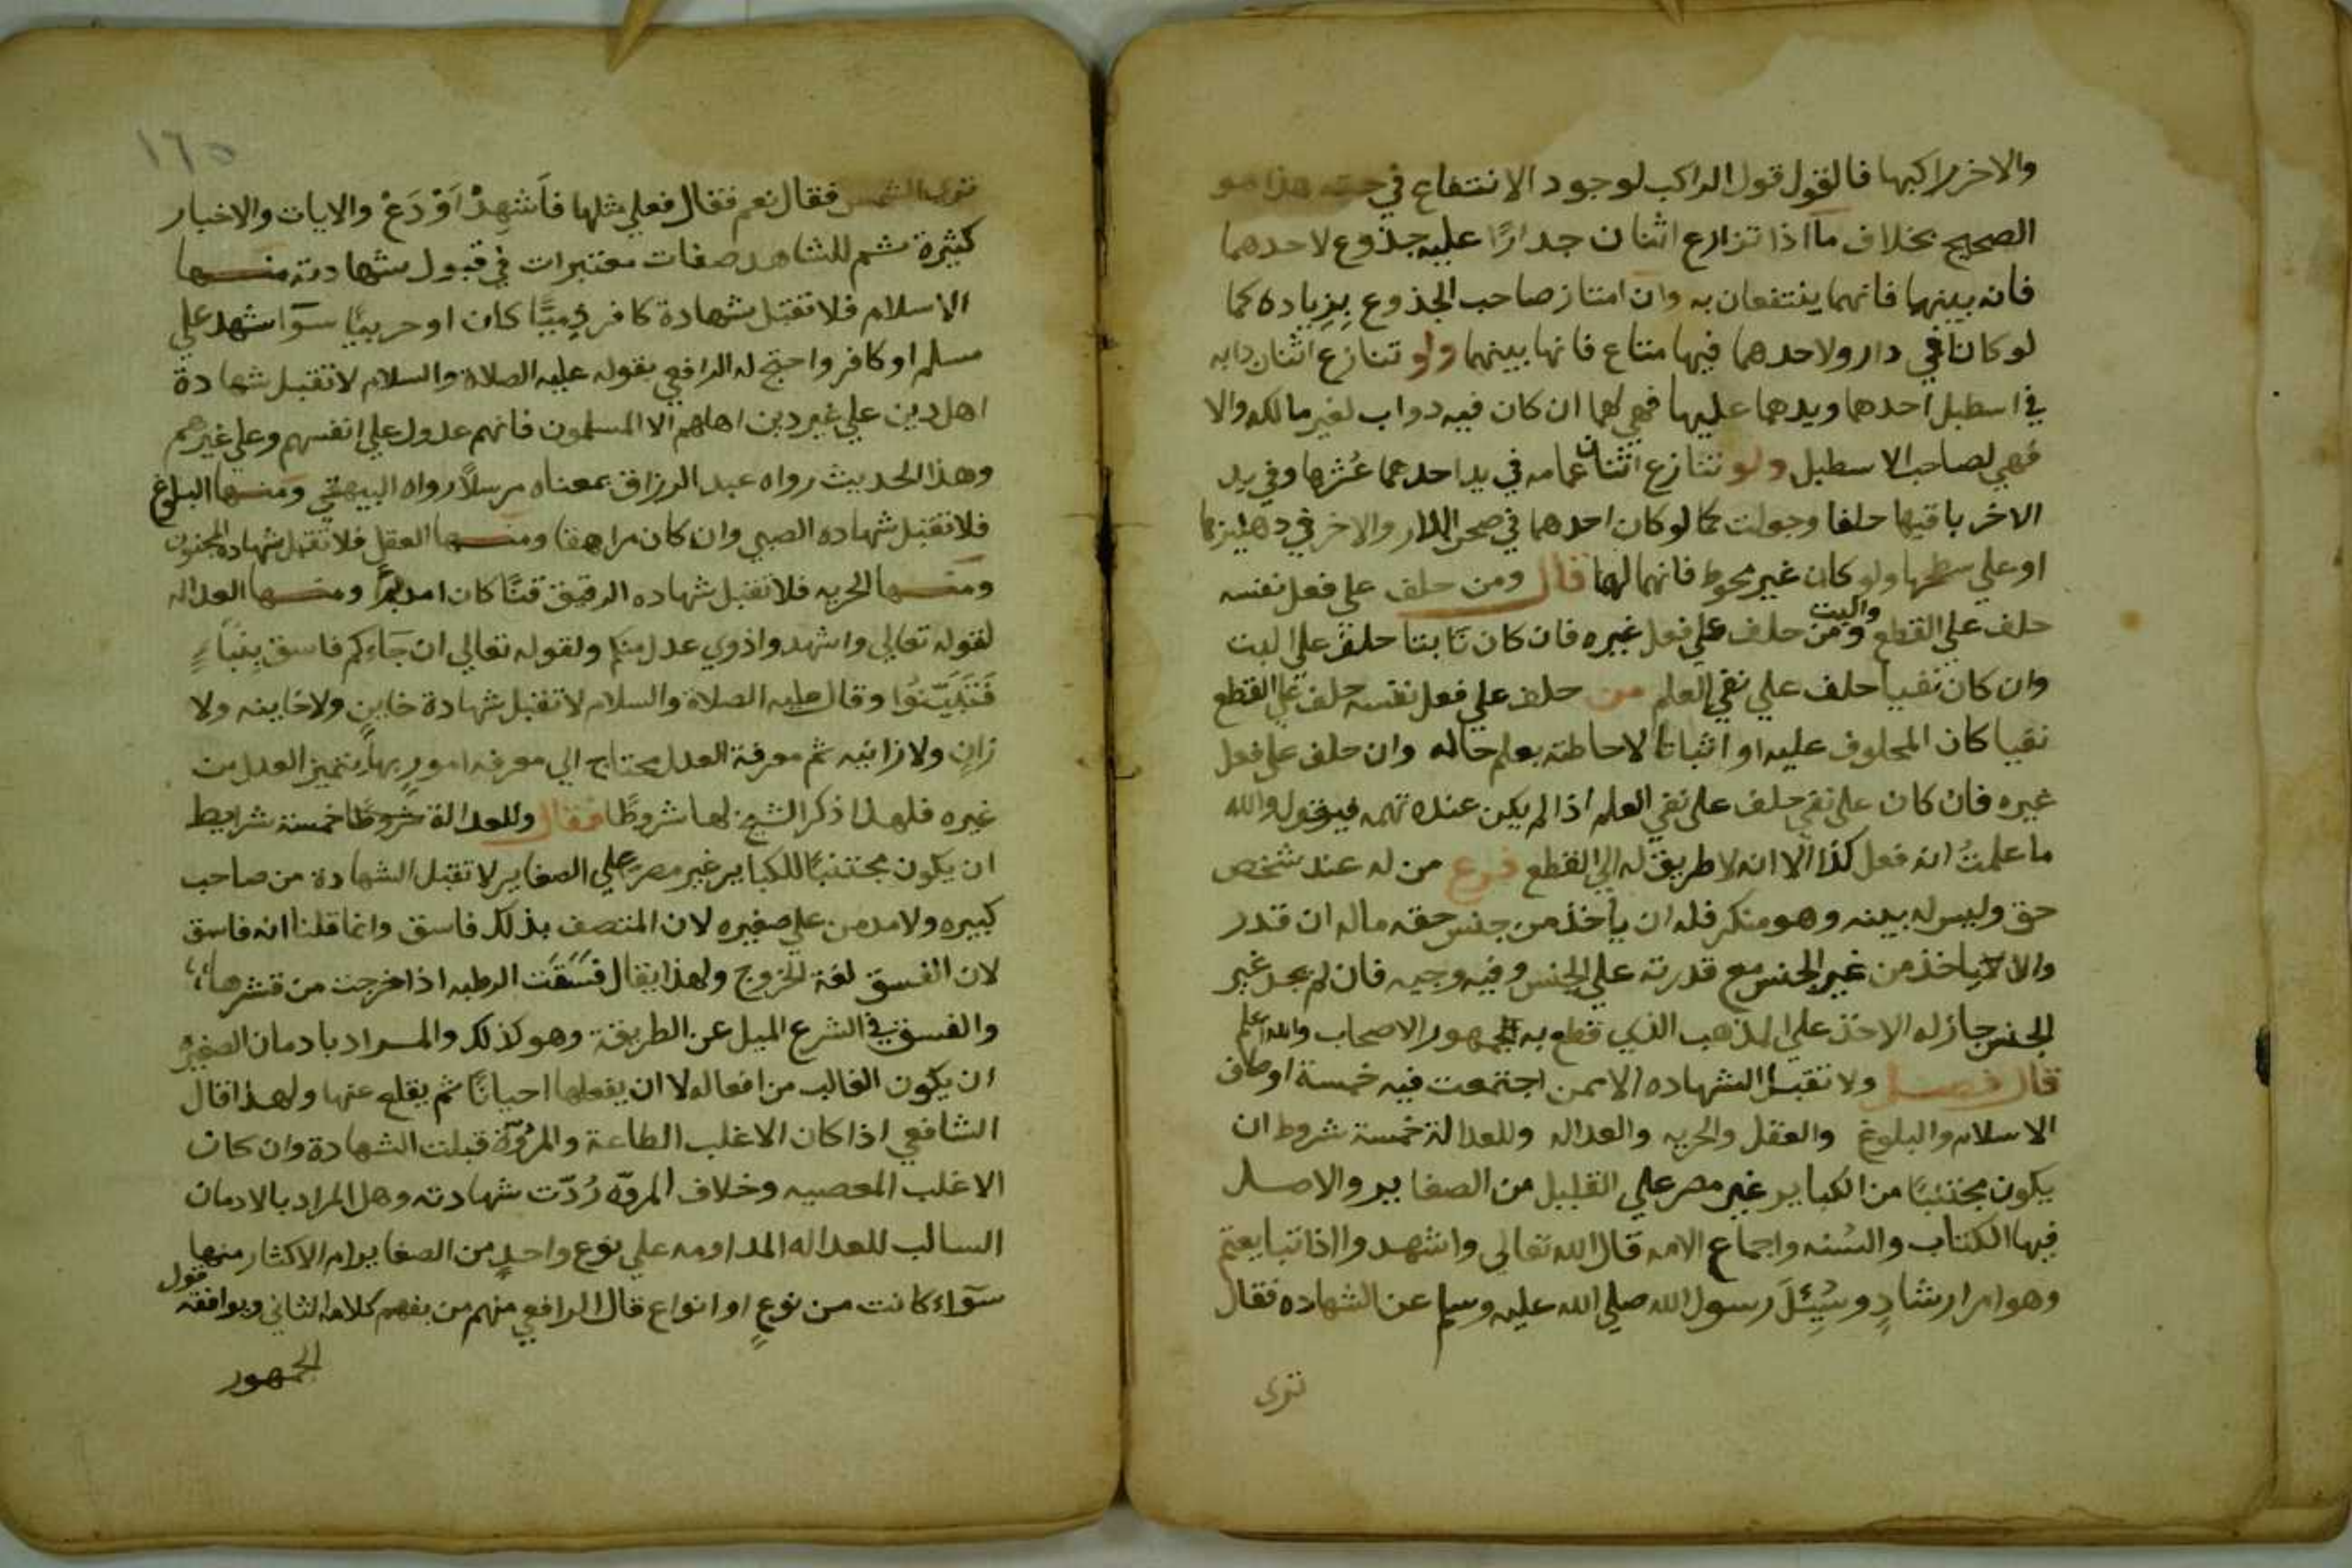 والاخر راكبها فالقول قول الراكب لوجود الانتفاع في حقه هذا هو
الصحيح بخلاف ما اذا تنازع اثنان جدارًا عليه جذوع لاحدهما
فانه بينهما فانهما ينتفعان به وان امتاز صاحب الجذوع بزياده كما
لو كانا في دار ولاحدهما فيها متاع فانها بينهما ولو تنازع اثنان دابه
في اسطبل احدهما ويدهما عليها فهي لهما ان كان فيه دواب لغير مالكه والا
فهي لصاحب الاسطبل ولو تنازع اثنان عمامه في يد احدهما عُشرها وفي يد
الاخر باقيها حلفا وجعلت كما لو كان احدهما في صحن الدار والاخر في دهليزها
او علي سطحها ولو كان غير محوط فانها لهما قال ومن حلف علي فعل نفسه
حلف علي القطع والبت ومن حلف علي فعل غيره فان كان ثابتا حلف علي البت
وان كان نفيا حلف علي نفي العلم من حلف علي فعل نفسه حلف علي القطع
نفيا كان المحلوف عليه او اثباتا لاحاطته بعلم حاله وان حلف علي فعل
غيره فان كان علي نفي حلف علي نفي العلم اذا لم يكن عنده تهمه فيقول والله
ما علمتُ انه فعل كذا الا انه لا طريق له الي القطع فرع من له عند شخص
حق وليس له بينه وهو منكر فله ان يأخذ من جنس حقه ماله ان قدر
والا لا ياخذ من غير الجنس مع قدرته علي الجنس وفيه وجيه فان لم يجد غير
الجنس جاز له الاخذ علي المذهب الذي قطع به جمهور الاصحاب والله اعلم
قال فصل ولا تقبل الشهاده الا ممن اجتمعت فيه خمسة اوصاف
الاسلام والبلوغ والعقل والحريه والعداله وللعدالة خمسة شروط ان
يكون مجتنبًا من الكباير غير مصر علي القليل من الصغاير والاصل
فيها الكتاب والسُنه واجماع الامه قال الله تعالي واشهدوا اذا تبايعتم
وهو امر ارشادٍ وسُئِلَ رسول الله صلي الله عليه وسلم عن الشهاده فقال
ترى
١٦٥
ترى الشمس فقال نعم فقال فعلي مثلها فَأَشهِدْ اَوْ دَعْ والايات والاخبار
كثيرة ثم للشاهد صفات معتبرات في قبول شهادته منها
الاسلام فلا تقبل شهادة كافر ذميًّا كان او حربيًّا سوآ شهد علي
مسلم او كافر واحتج له الرافعي بقوله عليه الصلاة والسلام لا تقبل شهادة
اهل دين علي غير دين اهلهم الا المسلمون فانهم عدول علي انفسهم وعلي غيرهم
وهذا الحديث رواه عبد الرزاق بمعناه مرسلاً رواه البيهقي ومنها البلوغ
فلا تقبل شهاده الصبي وان كان مراهقا ومنها العقل فلا تقبل شهاده المجنون
ومنها الحريه فلا تقبل شهاده الرقيق قنًّا كان ام مدبرًا ومنها العداله
لقوله تعالي واشهدوا ذوي عدل منكم ولقوله تعالي ان جَاءكم فاسق بِنَبَاءٍ
فَتَبَيَّنُوا وقال عليه الصلاة والسلام لا تقبل شهادة خاينٍ ولا خاينه ولا
زانٍ ولا زانيه ثم معرفة العدل محتاج الي معرفه امورٍ بها يتميز العدل من
غيره فلهذا ذكر الشيخ لها شروطًا فقال وللعدالة شروطًا خمسة شرايط
ان يكون مجتنبًا للكباير غير مصر علي الصغاير لا تقبل الشهادة من صاحب
كبيره ولا مدمن علي صغيره لان المتصف بذلك فاسق وانما قلنا انه فاسق
لان الفسق لغة الخروج ولهذا يقال فَسَقَت الرطبه اذا خرجت من قشرها
والفسق في الشرع الميل عن الطريقة وهو كذلك والمراد بادمان الصغيره
ان يكون الغالب من افعاله لا ان يفعلها احيانًا ثم يقلع عنها ولهذا قال
الشافعي اذا كان الاغلب الطاعة والمروّة قبلت الشهادة وان كان
الاغلب المعصيه وخلاف المروّه رُدّت شهادته وهل المراد بالادمان
السالب للعداله المداومه علي نوع واحدٍ من الصغاير ام الاكثار منها
سوآء كانت من نوعٍ او انواع قال الرافعي منهم من يفهم كلامه الثاني ويوافقه قول
الجمهور